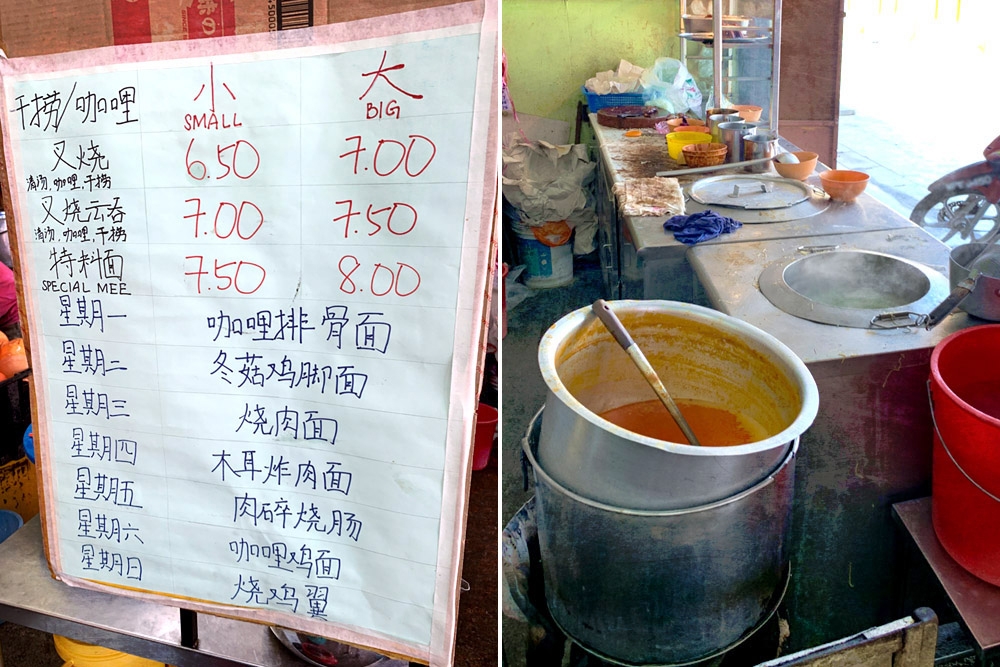 小 大
干捞/咖哩 SMALL BIG
叉烧 6.50 7.00
清汤,咖哩,干捞
叉烧云吞 7.00 7.50
清汤,咖哩,干捞
特料面 7.50 8.00
SPECIAL MEE
星期一 咖哩排骨面
星期二 冬菇鸡脚面
星期三 烧肉面
星期四 木耳炸肉面
星期五 肉碎烧肠
星期六 咖哩鸡面
星期日 烧鸡翼